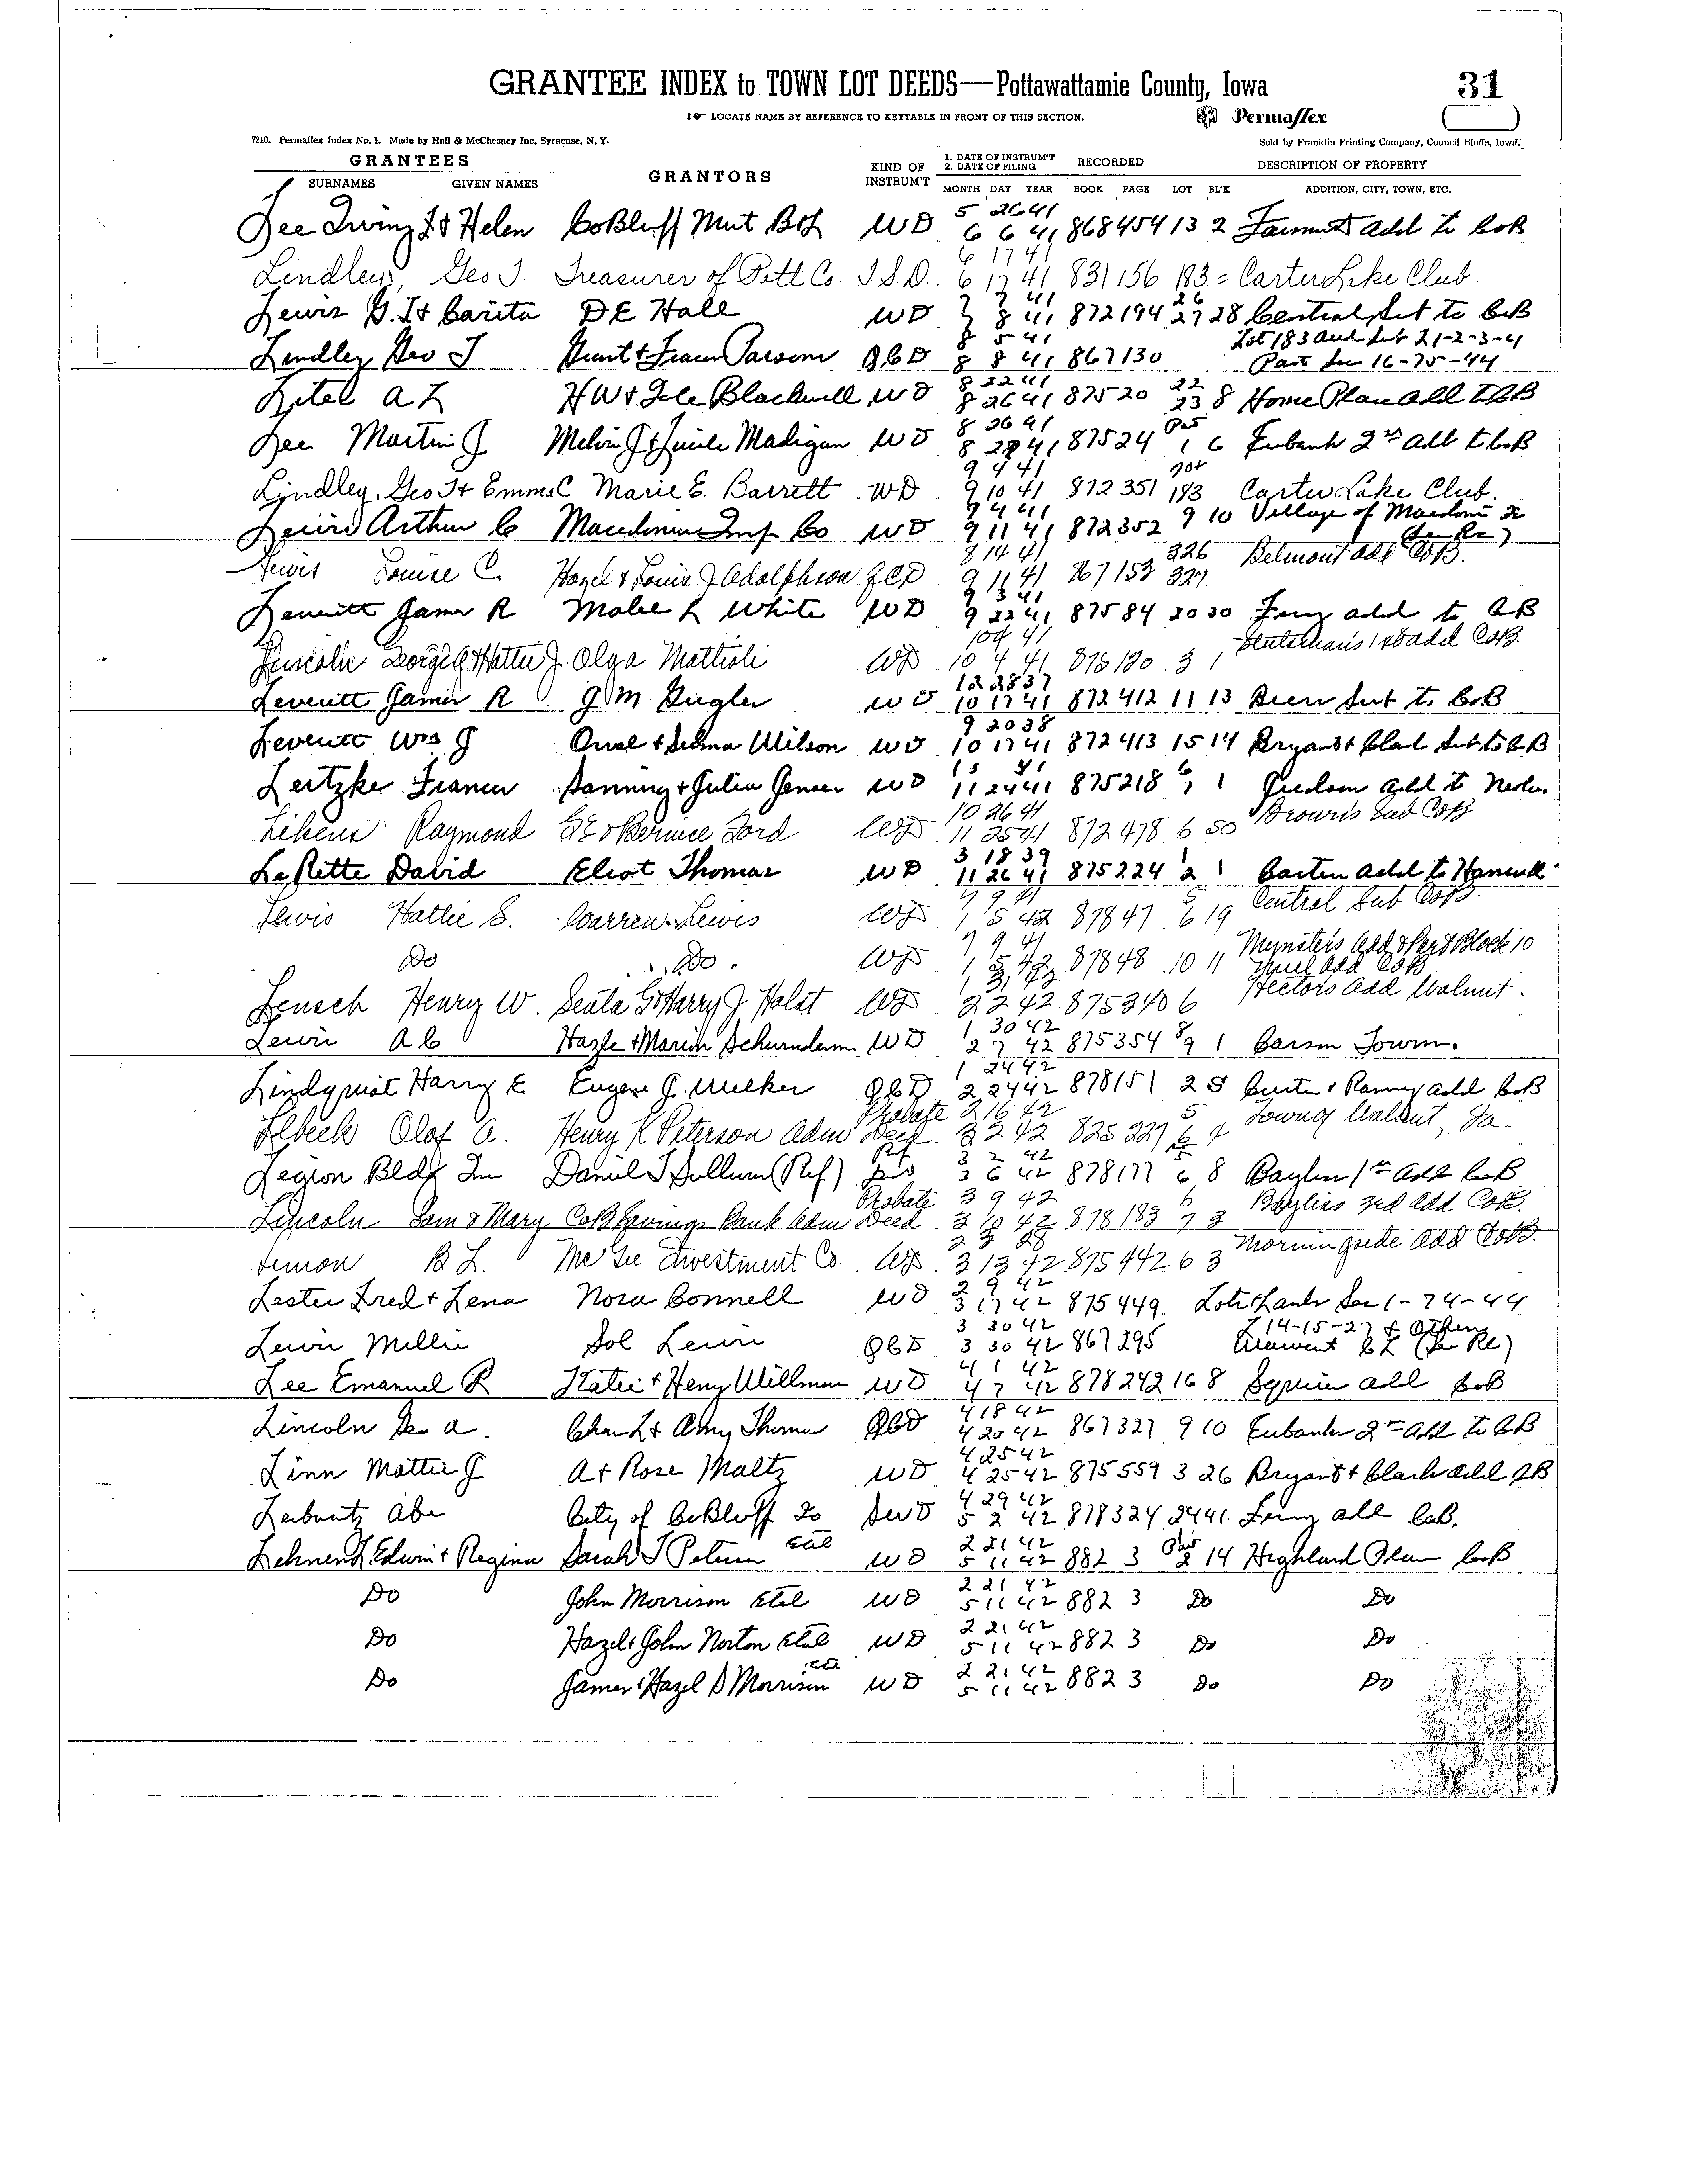 GRANTEE INDEX to TOWN LOT DEEDS—Pottawattamie County, Iowa 31
☞ LOCATE NAME BY REFERENCE TO KEYTABLE IN FRONT OF THIS SECTION. Permaflex
7210. Permaflex Index No. 1. Made by Hall & McChesney Inc, Syracuse, N. Y. Sold by Franklin Printing Company, Council Bluffs, Iowa.
GRANTEES GRANTORS KIND OF INSTRUM'T 1. DATE OF INSTRUM'T 2. DATE OF FILING RECORDED DESCRIPTION OF PROPERTY
SURNAMES GIVEN NAMES MONTH DAY YEAR BOOK PAGE LOT BL'K ADDITION, CITY, TOWN, ETC.
5 26 41
Lee Irving & Helen CoBluff Mut B&L WD 6 6 41 868 454 13 2 Add to CoB
6 17 41
Lindley, Geo T. Treasurer of Pott Co. T.S.D. 6 17 41 831 156 183 = Carter Lake Club.
7 7 41 26
Lewis G.T & Carita D E Hall WD 7 8 41 872 194 27 28 Central Sub to CoB
8 5 41 Lot 183 and Sub 21-2-3-4
Lindley Geo T Grant & Parsons QCD 8 8 41 867 130 Part Sec 16-75-44
8 22 41 22
Litel A L H W & Blackwell WD 8 26 41 875 20 23 8 Home Place Add CB
8 26 41 Pt
Lee Martin J Melvin J & Madigan WD 8 28 41 875 24 1 6 Eubank 2nd Add to CoB
9 4 41
Lindley, Geo T & Emma C Marie E. Barrett WD 9 10 41 872 351 183 Carter Lake Club.
9 4 41
Lewis Arthur C Macedonia Imp Co WD 9 11 41 872 352 9 10 Village of
8 14 41 326
Lewis Louise C. Hazel & Louis J Adolphson QCD 9 11 41 867 153 327 Belmont Add CoB.
9 3 41
Leveritt James R Mabel L White WD 9 22 41 875 84 20 30 Ferry Add to CB
10 4 41
Lincoln George A & Hattie J. Olga Mattioli WD 10 4 41 875 120 3 1 1st Add CoB.
12 28 37
Leveritt James R J M WD 10 17 41 872 412 11 13 Beers Sub to CoB
9 20 38
Leveritt Wm J & Selma Wilson WD 10 17 41 872 413 15 14 Bryant & Clark Sub to CB
Lertzke & Julia Jensen WD 11 24 41 875 218 7 1 Judson Add to Neola
10 26 41
Likens Raymond & Bernice Ford WD 11 25 41 872 478 6 50 Brown's Sub CoB
3 18 39 1
LaRette David Eliot Thomas WD 11 26 41 875 224 2 1 Add to Hancock
7 9 41 5
Lewis Hattie S. Warren Lewis WD 1 5 42 878 47 6 19 Central Sub CoB.
7 9 41
Do Do WD 1 5 42 878 48 10 11 Mynster's Add & Part Block 10 Mill Add CoB
1 31 42
Lensch Henry W. Harry J Holst WD 2 2 42 875 340 6 Hectors Add Walnut.
1 30 42 8
Lewis A C Hazle & Marion WD 2 7 42 875 354 9 1 Carson Town.
1 24 42
Lindquist Harry E Eugene J. QCD 2 24 42 878 151 2 5 Curtis & Ramsey Add CoB
Probate 2 16 42 5
Olaf A. Henry K Peterson Adm Deed 3 2 42 825 227 6 4 Town of Walnut, Ia.
Rf 3 2 42 5
Legion Bldg In Daniel J Sullivan (Ref) 3 6 42 878 177 6 8 Bayliss 1st Add CoB
Probate 3 9 42 6
Lincoln Sam & Mary CoB Savings Bank Adm Deed 3 10 42 878 183 7 3 Bayliss 3rd Add CoB.
Lemon B L. McGee Investment Co. WD 3 13 42 875 442 6 3 Morningside Add CoB.
2 9 42
Lester Fred & Lena Nora Connell WD 3 17 42 875 449 Lots & Lands Sec 1-74-44
3 30 42 14-15-27 & Others
Lewis Millie Sol Lewis QCD 3 30 42 867 295 (See Rec)
4 1 42
Lee Emanuel R Katie & Henry Willman WD 4 7 42 878 242 16 8 Squires Add CoB
4 18 42
Lincoln Geo A. Chas L & Amy Thomas QCD 4 20 42 867 327 9 10 Eubanks 2nd Add to CB
4 25 42
Linn Mattie J A & Rose Maltz WD 4 25 42 875 559 3 26 Bryant & Clark Add CB
4 29 42
Leibovitz Abe City of CoBluff Ia SWD 5 2 42 878 324 24 41 Ferry Add CoB.
Etal 2 21 42 Pt
Edwin & Regina Sarah J Peterson WD 5 11 42 882 3 2 14 Highland Place CoB
2 21 42
Do John Morrison Etal WD 5 11 42 882 3 Do Do
2 21 42
Do Hazel & John Norton Etal WD 5 11 42 882 3 Do Do
etal 2 21 42
Do James & Hazel D Morrison WD 5 11 42 882 3 Do Do